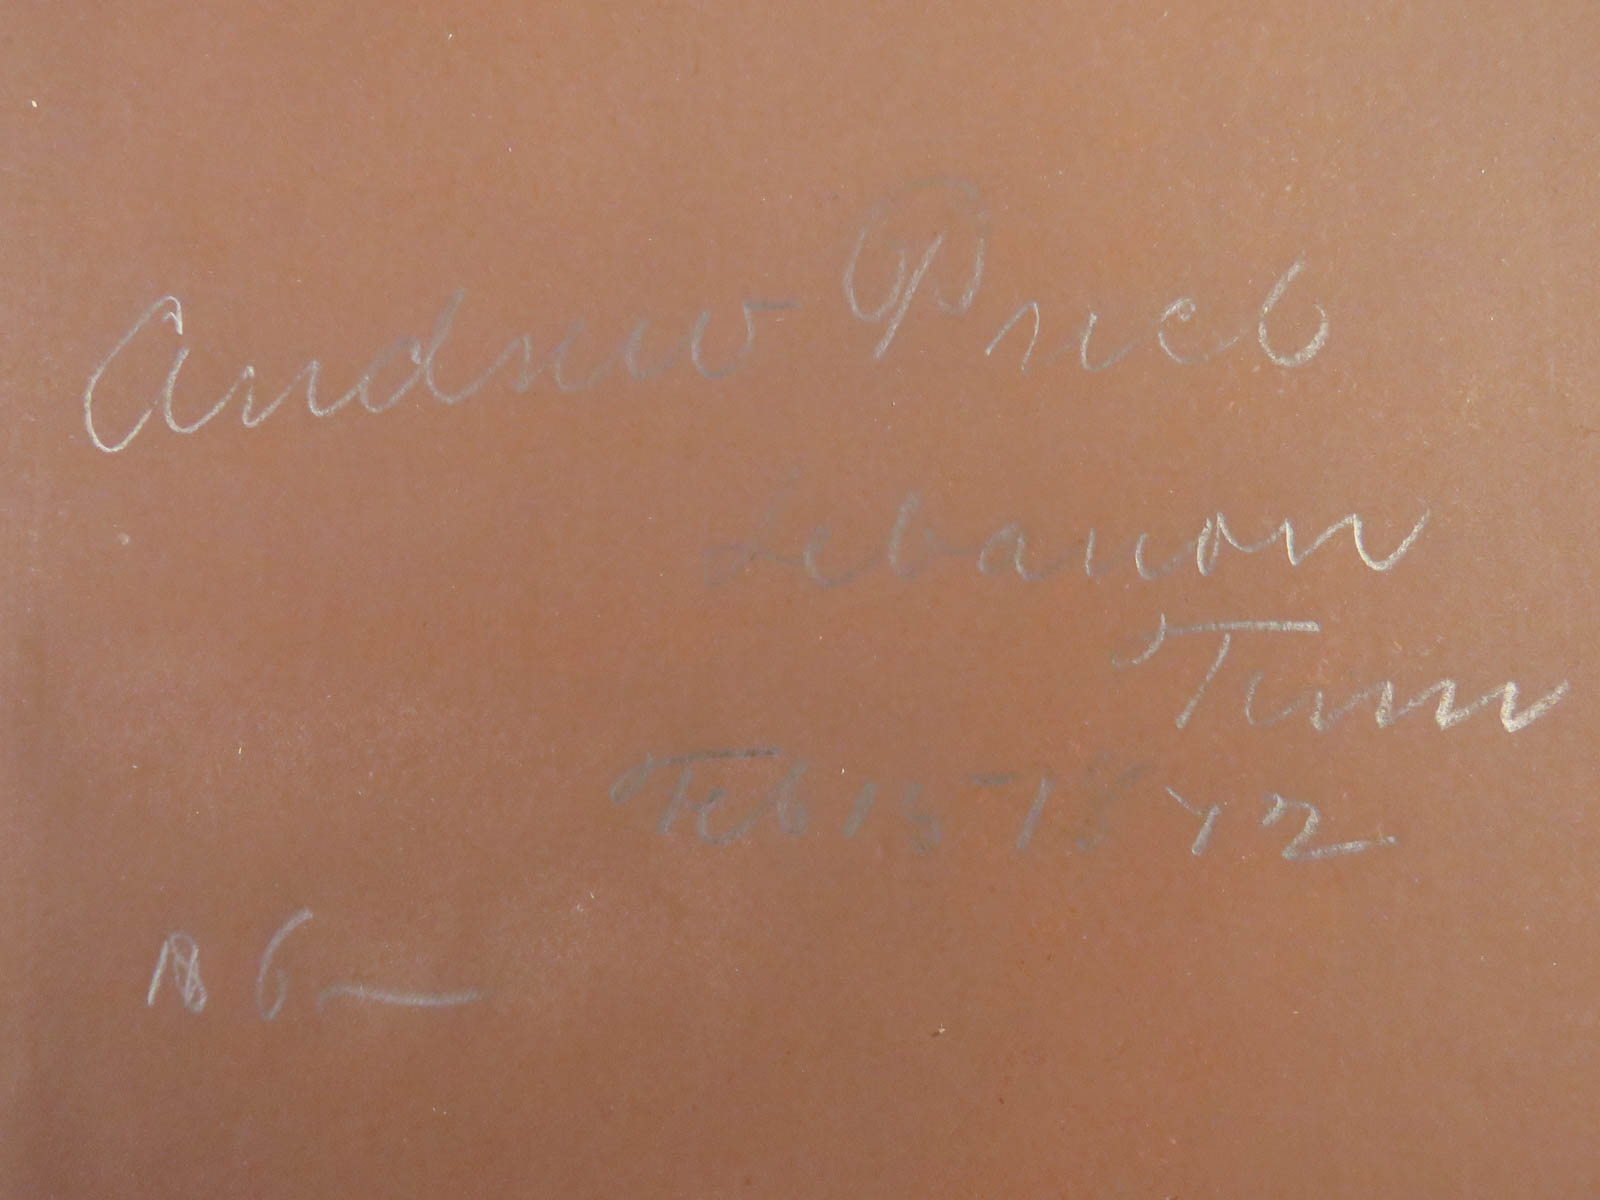 Andrew Price
Lebanon
Tenn
Feb 15 1842